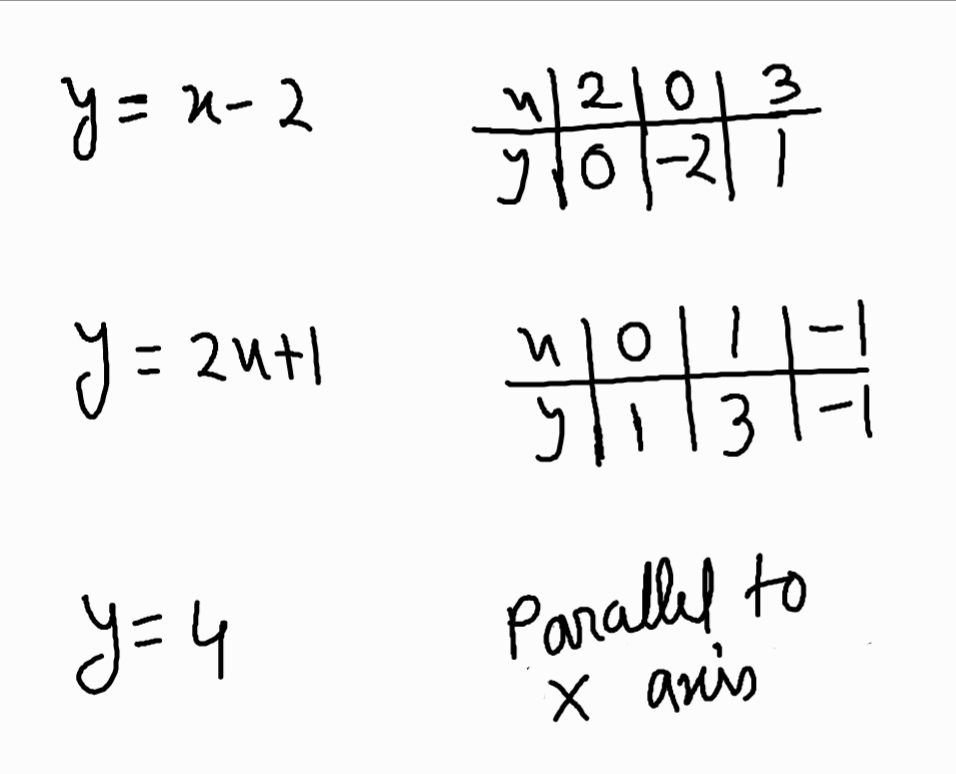 y = x - 2
x | 2 | 0 | 3
y | 0 | -2 | 1
y = 2x+1
x | 0 | 1 | -1
y | 1 | 3 | -1
y = 4
Parallel to
X axis